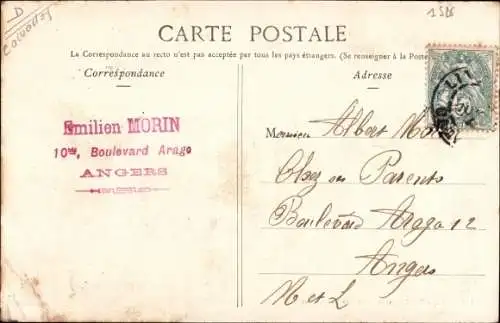 D
Calvados
1526
CARTE POSTALE
La Correspondance au recto n'est pas acceptée par tous les pays étrangers. (Se renseigner à la Poste
Correspondance
Adresse
Emilien MORIN
10bis, Boulevard Arago
ANGERS
Monsieur Albert
Chez ses Parents
Boulevard Arago 12
Angers
M et L